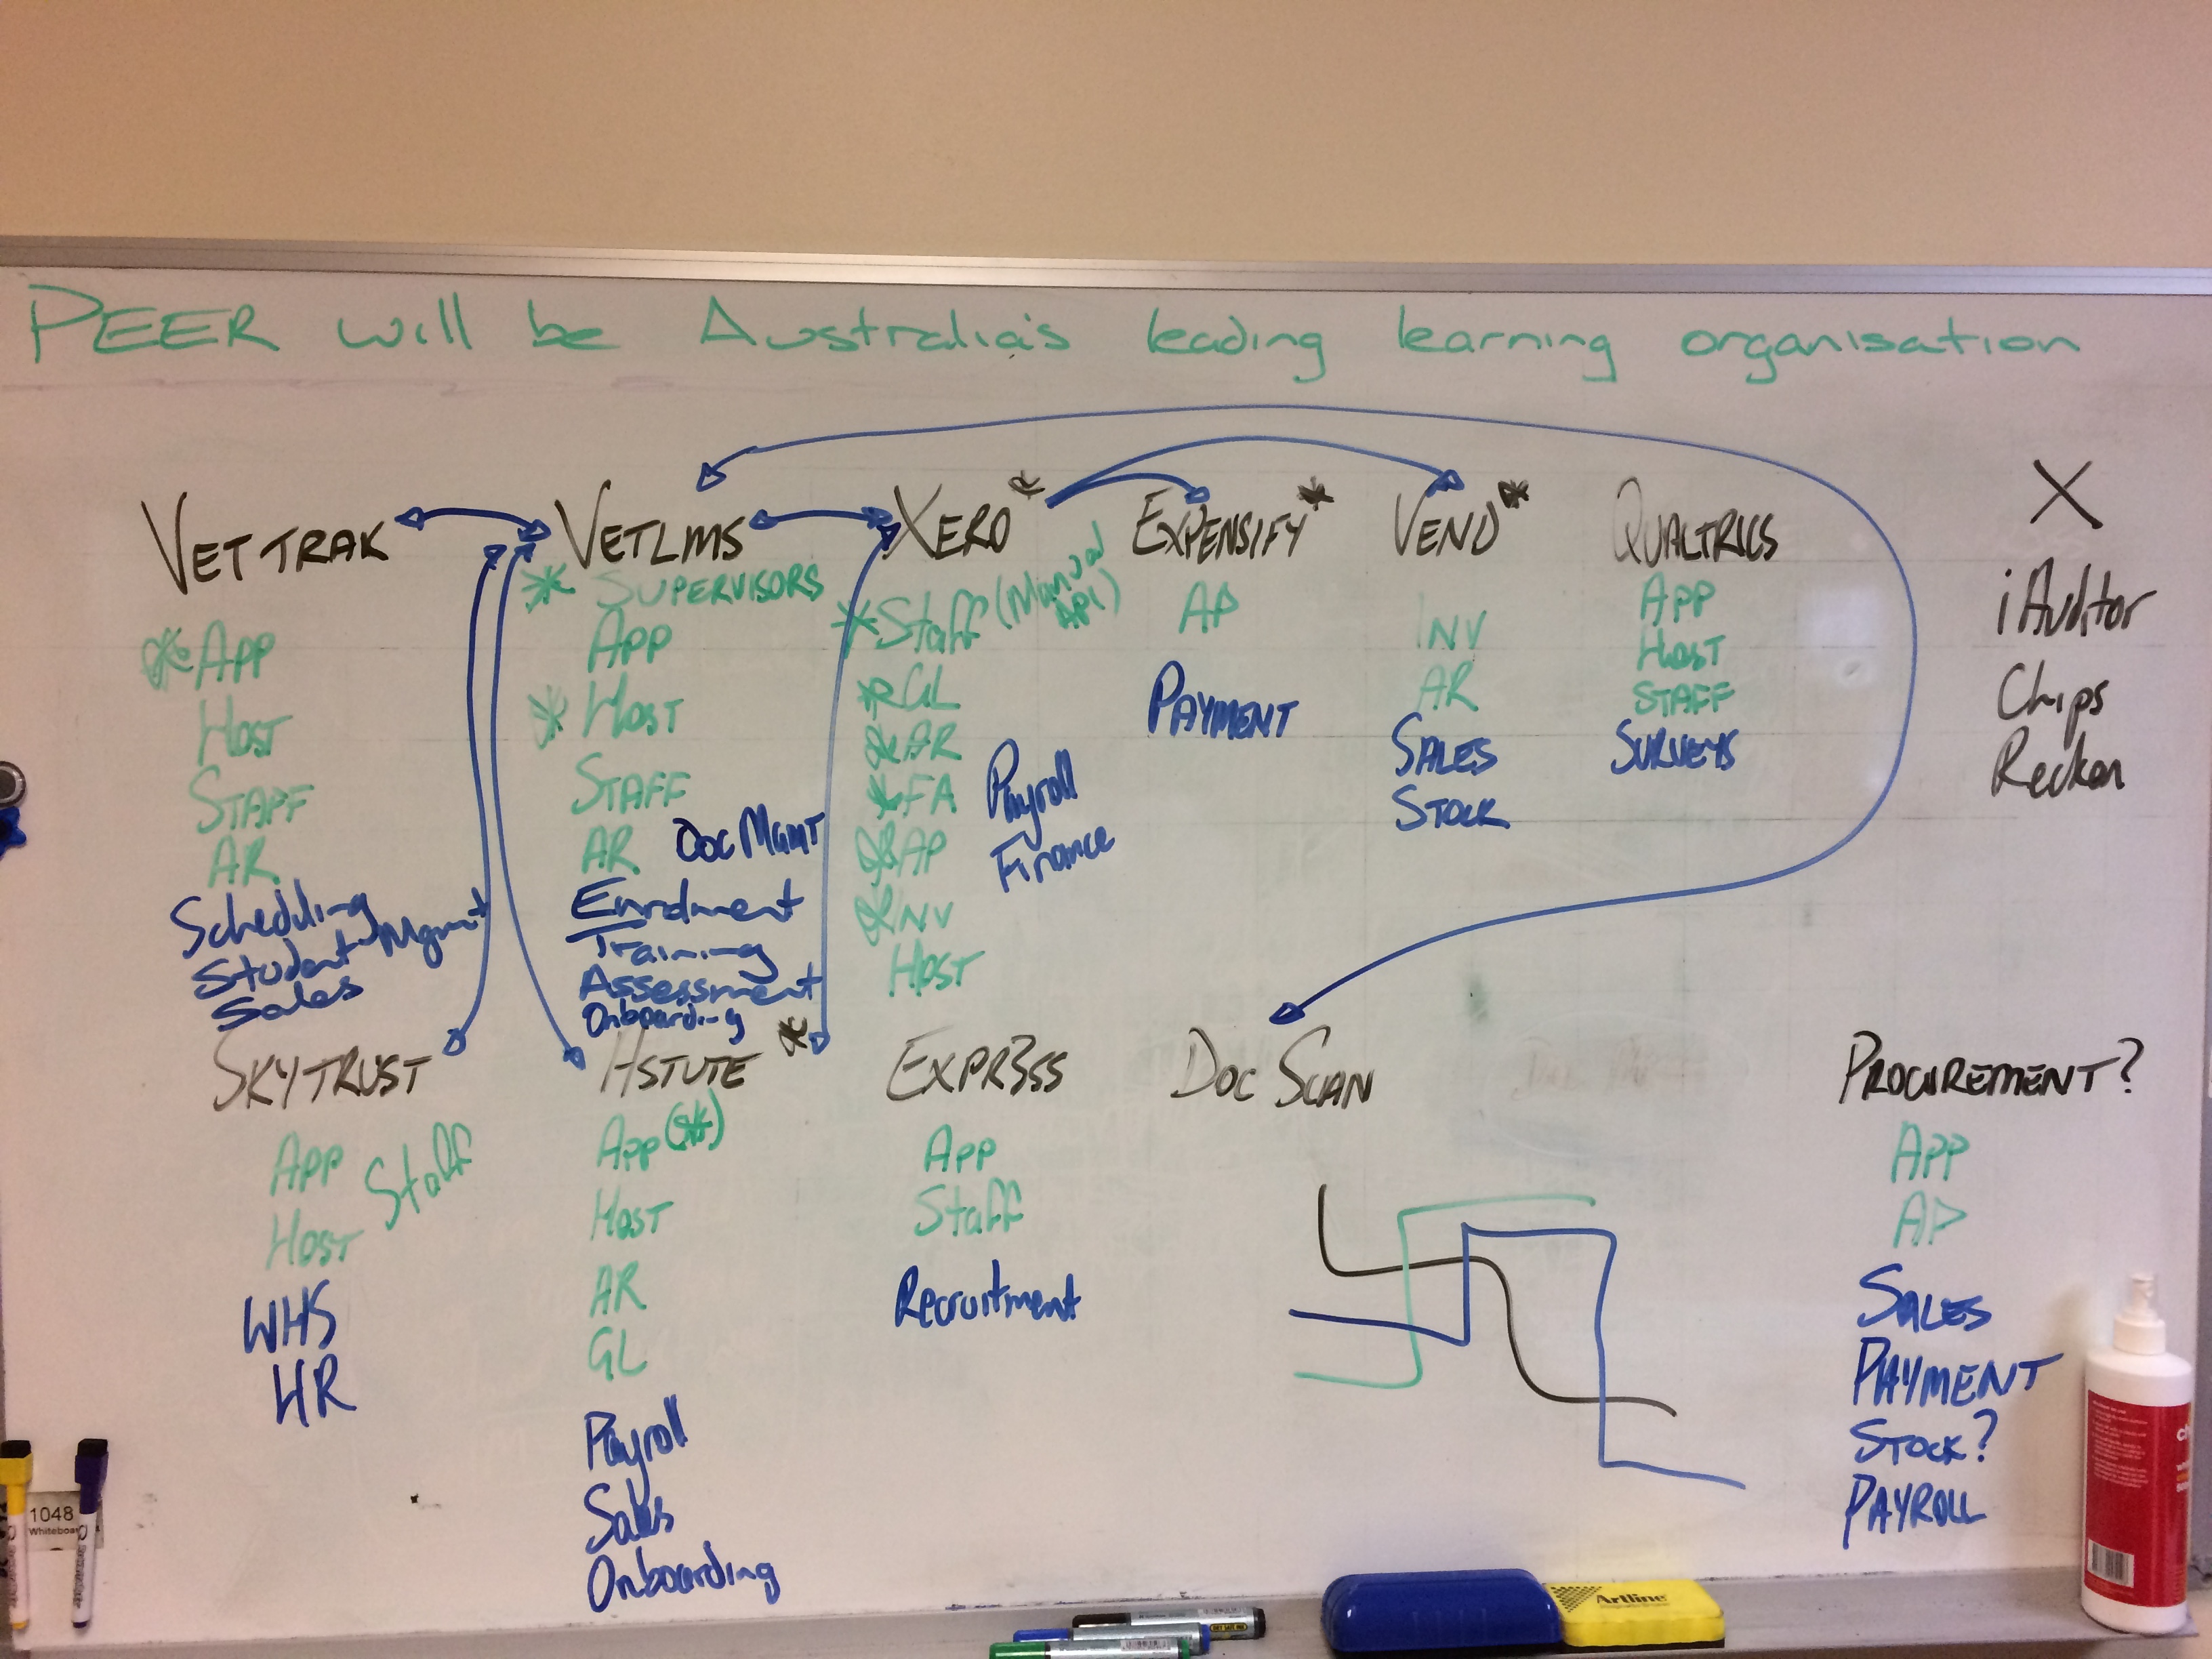 PEER will be Australia's leading learning organisation
VETTRAK
* App
Host
Staff
AR
Scheduling
Student Mgmt
Sales
VETLMS
* Supervisors
App
* Host
Staff
AR
Doc Mgmt
Enrolment
Training
Assessment
Onboarding
XERO *
* Staff (Manual API)
* GL
* AR
* FA
* AP
* INV
Host
Payroll
Finance
EXPENSIFY *
AP
PAYMENT
VEND *
INV
AR
SALES
STOCK
QUALTRICS
App
Host
STAFF
SURVEYS
X
iAuditor
Chips
Reckon
SKYTRUST
App
Host
Staff
WHS
HR
HSTUTE *
App (*)
Host
AR
GL
Payroll
Sales
Onboarding
EXPR3SS
App
Staff
Recruitment
DOC SCAN
PROCUREMENT?
App
AP
SALES
PAYMENT
STOCK?
PAYROLL
1048
Artline